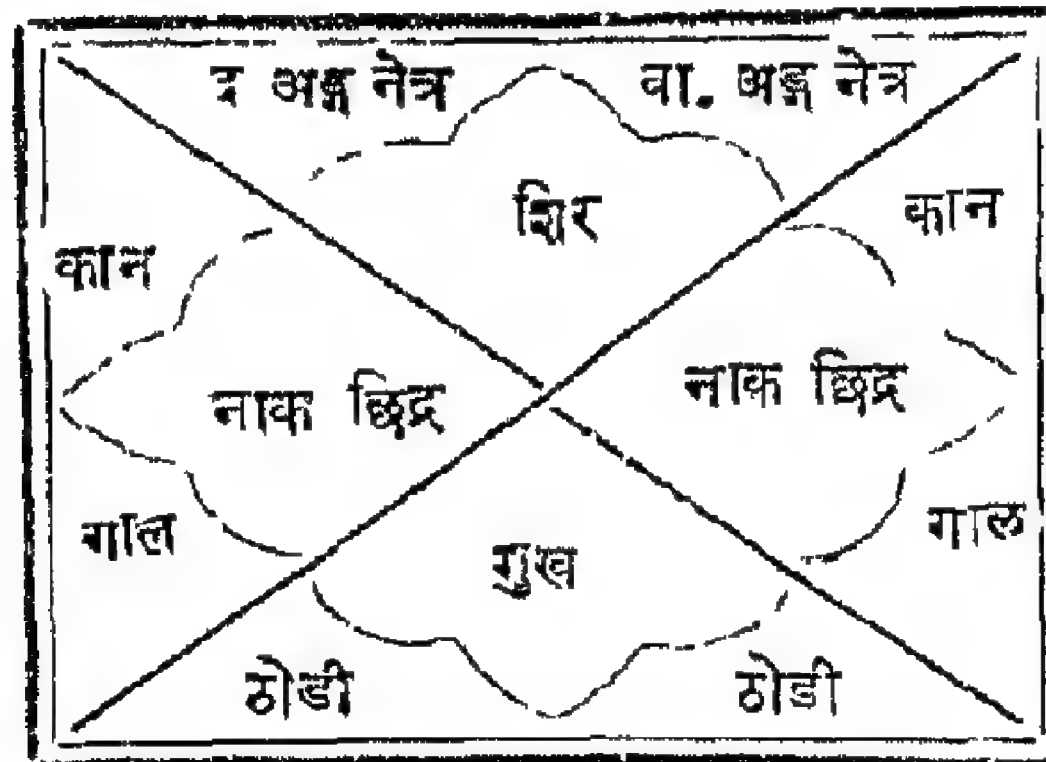 द अङ्ग नेत्र
वा. अङ्ग नेत्र
शिर
कान
कान
नाक छिद्र
नाक छिद्र
गाल
गाल
मुख
ठोडी
ठोडी